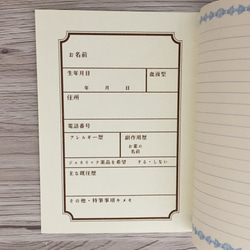 お名前
生年月日 血液型
年 月 日
住所
電話番号
アレルギー歴 副作用歴
お薬の
名前
ジェネリック薬品を希望 する・しない
主な既往歴
その他・特筆事項＆メモ